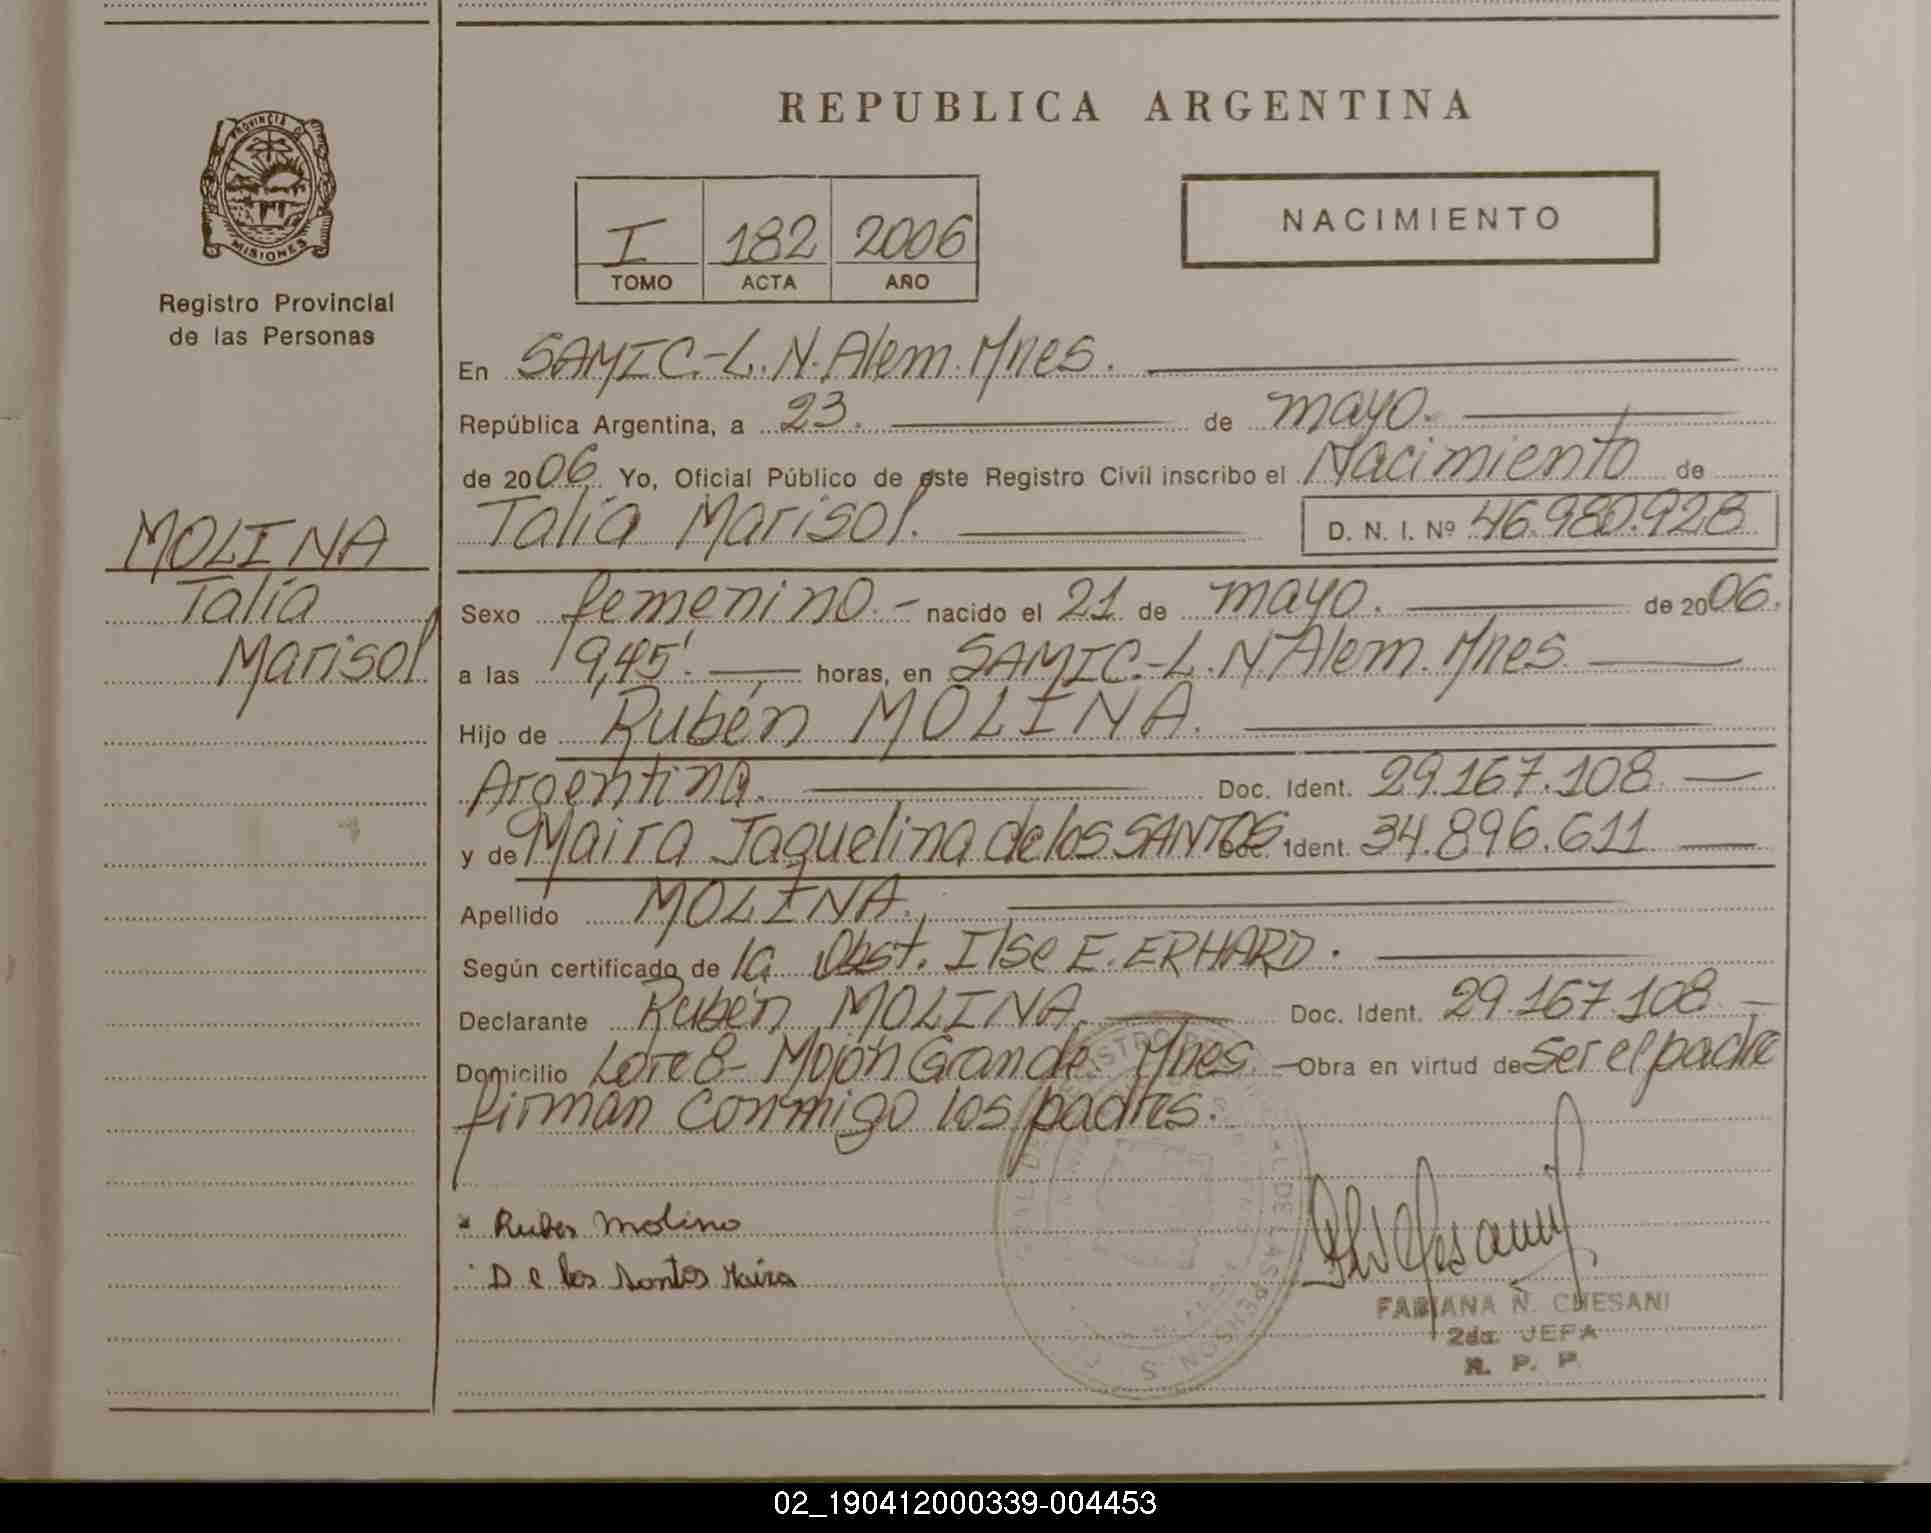 REPUBLICA ARGENTINA
PROVINCIA DE
MISIONES
Registro Provincial
de las Personas
I 182 2006
TOMO ACTA AÑO
NACIMIENTO
En SAMIC.-L.N.Alem.Mnes.
República Argentina, a 23. de mayo.
de 2006 Yo, Oficial Público de este Registro Civil inscribo el Nacimiento de
Talía Marisol. D. N. I. Nº 46.980.928
MOLINA
Talía
Marisol
Sexo femenino.- nacido el 21 de mayo. de 2006.
a las 19,45'. horas, en SAMIC.-L.N.Alem.Mnes.
Hijo de Rubén MOLINA.
Argentina. Doc. Ident. 29.167.108
y de Maira Jaquelina de los SANTOS Doc. Ident. 34.896.611
Apellido MOLINA.
Según certificado de la Obst. Ilse E. ERHARD.
Declarante Rubén MOLINA. Doc. Ident. 29.167.108
Domicilio Lote 8- Mojón Grande. Mnes. -Obra en virtud de ser el padre
firman conmigo los padres.
Ruben Molina
D e los Santos Maira
FABIANA N. CHESANI
2da. JEFA
R. P. P.
02_190412000339-004453